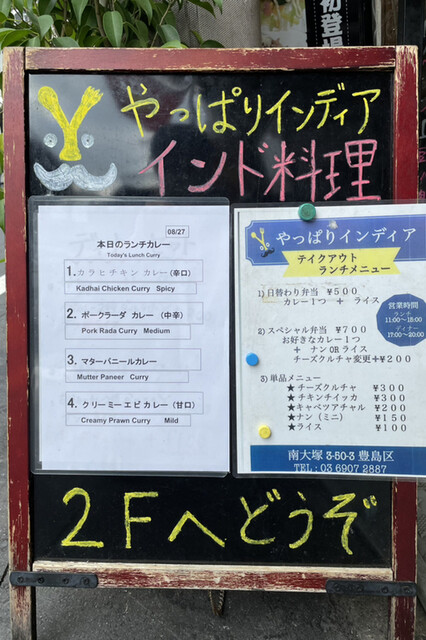 初登場
やっぱりインディア
インド料理
08/27
本日のランチカレー
Today's Lunch Curry
1. カラヒチキン カレー (辛口)
Kadhai Chicken Curry Spicy
2. ポークラーダ カレー (中辛)
Pork Rada Curry Medium
3. マターパニールカレー
Mutter Paneer Curry
4. クリーミーエビカレー (甘口)
Creamy Prawn Curry Mild
やっぱりインディア
テイクアウト
ランチメニュー
1) 日替わり弁当 ¥500
カレー1つ + ライス
営業時間
ランチ
11:00~15:00
ディナー
17:00~20:00
2) スペシャル弁当 ¥700
お好きなカレー1つ
+ ナンORライス
チーズクルチャ変更+¥200
3) 単品メニュー
★チーズクルチャ ¥300
★チキンチイッカ ¥300
★キャベツアチャル ¥200
★ナン(ミニ) ¥150
★ライス ¥100
南大塚 3-50-3 豊島区
TEL: 03 6907 2887
2Fへどうぞ